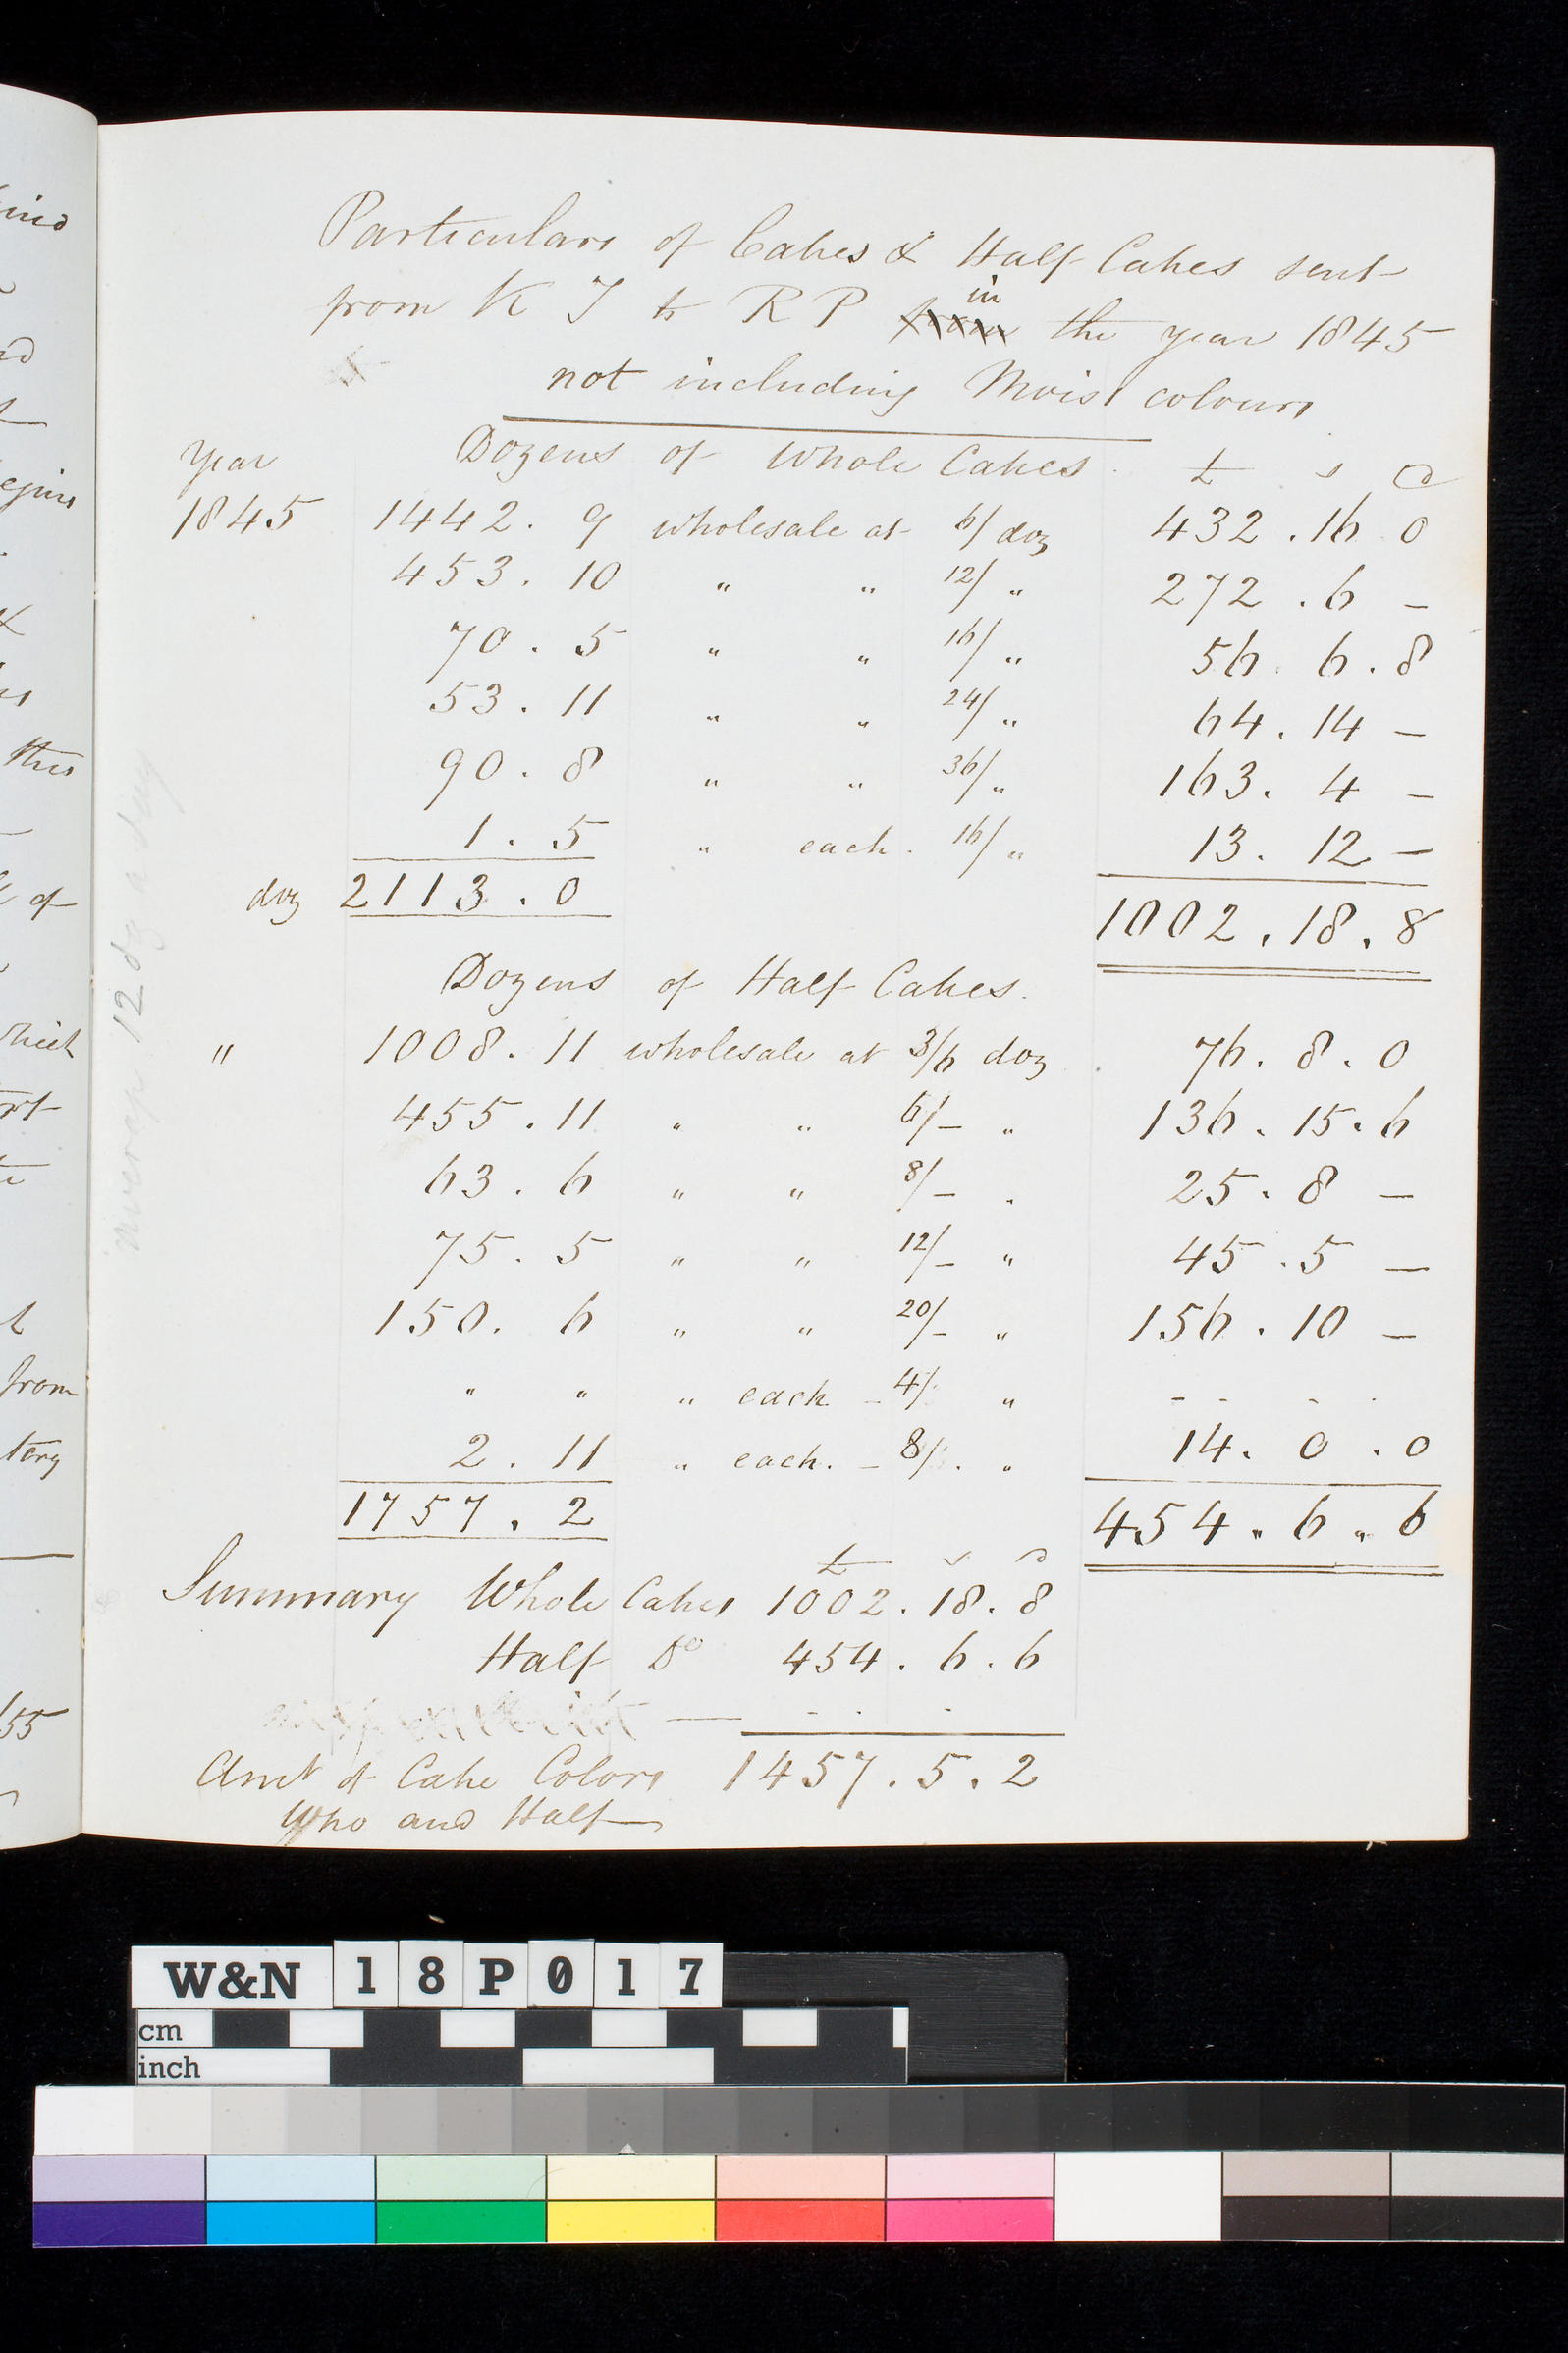 Particulars of Cakes & Half Cakes sent
from K T to R P from in the year 1845
not including Moist colours
Year Dozens of Whole Cakes £ s d
1845 1442 . 9 wholesale at 6/ doz 432 . 16 0
453 . 10 " " 12/ " 272 . 6 –
70 . 5 " " 16/ " 56 . 6 . 8
53 . 11 " " 24/ " 64 . 14 –
90 . 8 " " 36/ " 163 . 4 –
1 . 5 " each . 16/ " 13 . 12 –
doz 2113 . 0 1002 . 18 . 8
Dozens of Half Cakes.
" 1008 . 11 wholesale at 3/6 doz 76 . 8 . 0
455 . 11 " " 6/– " 136 . 15 . 6
63 . 6 " " 8/– " 25 . 8 –
75 . 5 " " 12/– " 45 . 5 –
150 . 6 " " 20/– " 156 . 10 –
" " " each – 4/ " - - - -
2 . 11 " each. – 8/ . " 14 . 0 . 0
1757 . 2 454 . 6 . 6
£ s d
Summary Whole Cakes 1002 . 18 . 8
Half Do 454 . 6 . 6
Amt of Cake Colors 1457 . 5 . 2
Who and Half
12 dz a day
ind
egins
this
of
from
tory
155
W&N 18P017
cm
inch